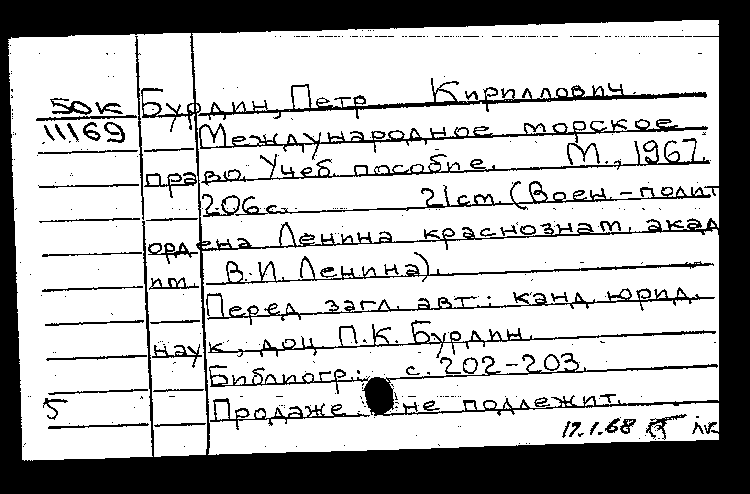 50к Бурдин, Петр Кириллович.
11169 Международное морское
право. Учеб. пособие. М., 1967.
206с. 21см. (Воен.-полит
ордена Ленина краснознам. акад
им. В.И. Ленина).
Перед загл. авт.: канд. юрид.
наук, доц П.К. Бурдин.
Библиогр.: с. 202-203.
5 Продаже не подлежит.
17.1.68